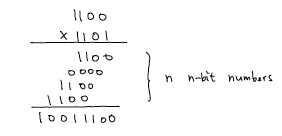 1100
x 1101
1100
0000
1100
1100
10011100
n n-bit numbers